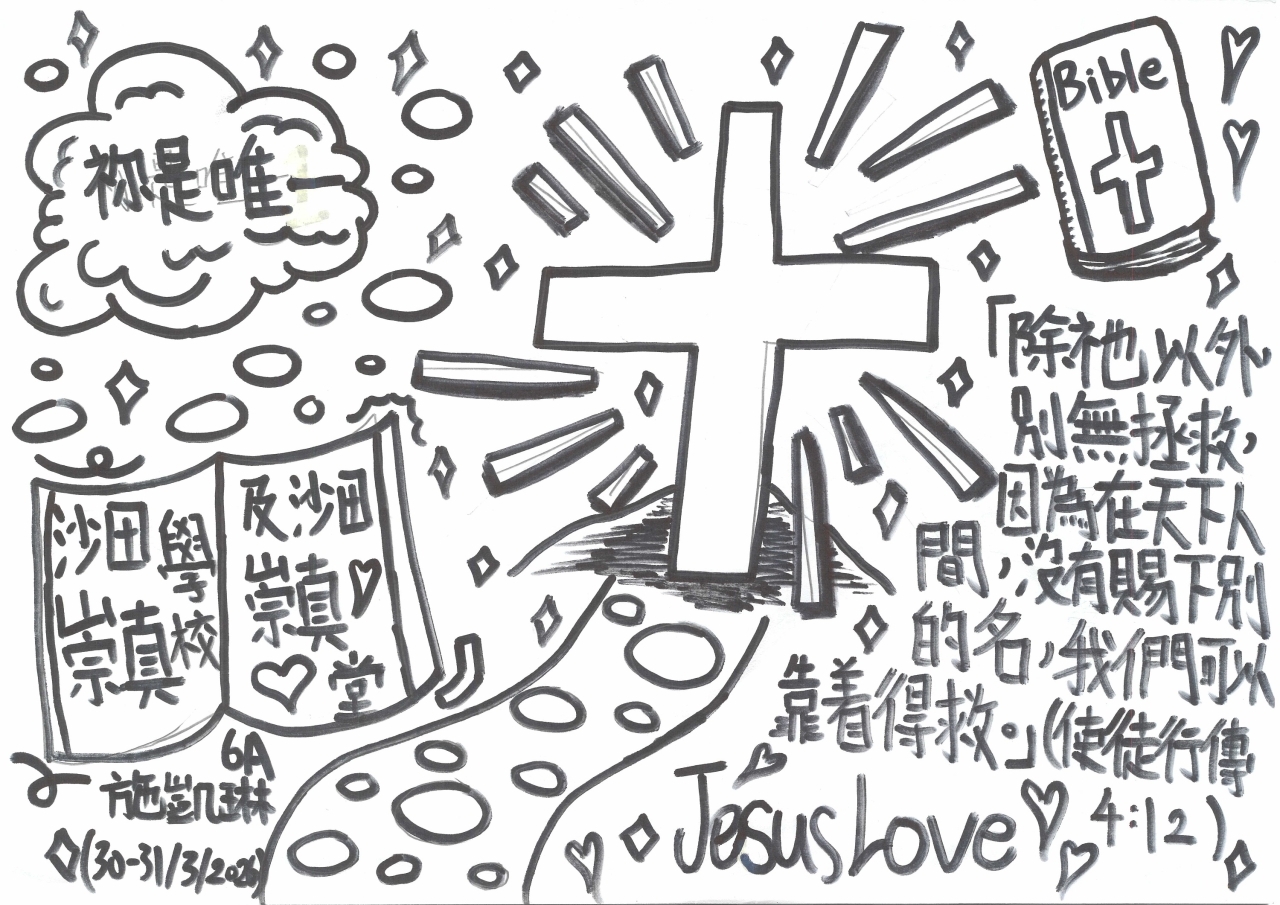 祢是唯一
Bible
「除祂以外
別無拯救，
因為在天下人
間，沒有賜下別
的名，我們可以
靠着得救。」(使徒行傳
4:12)
沙田
崇真
學校
及沙田
崇真
堂
6A
施凱琳
(30-31/3/2026)
Jesus Love